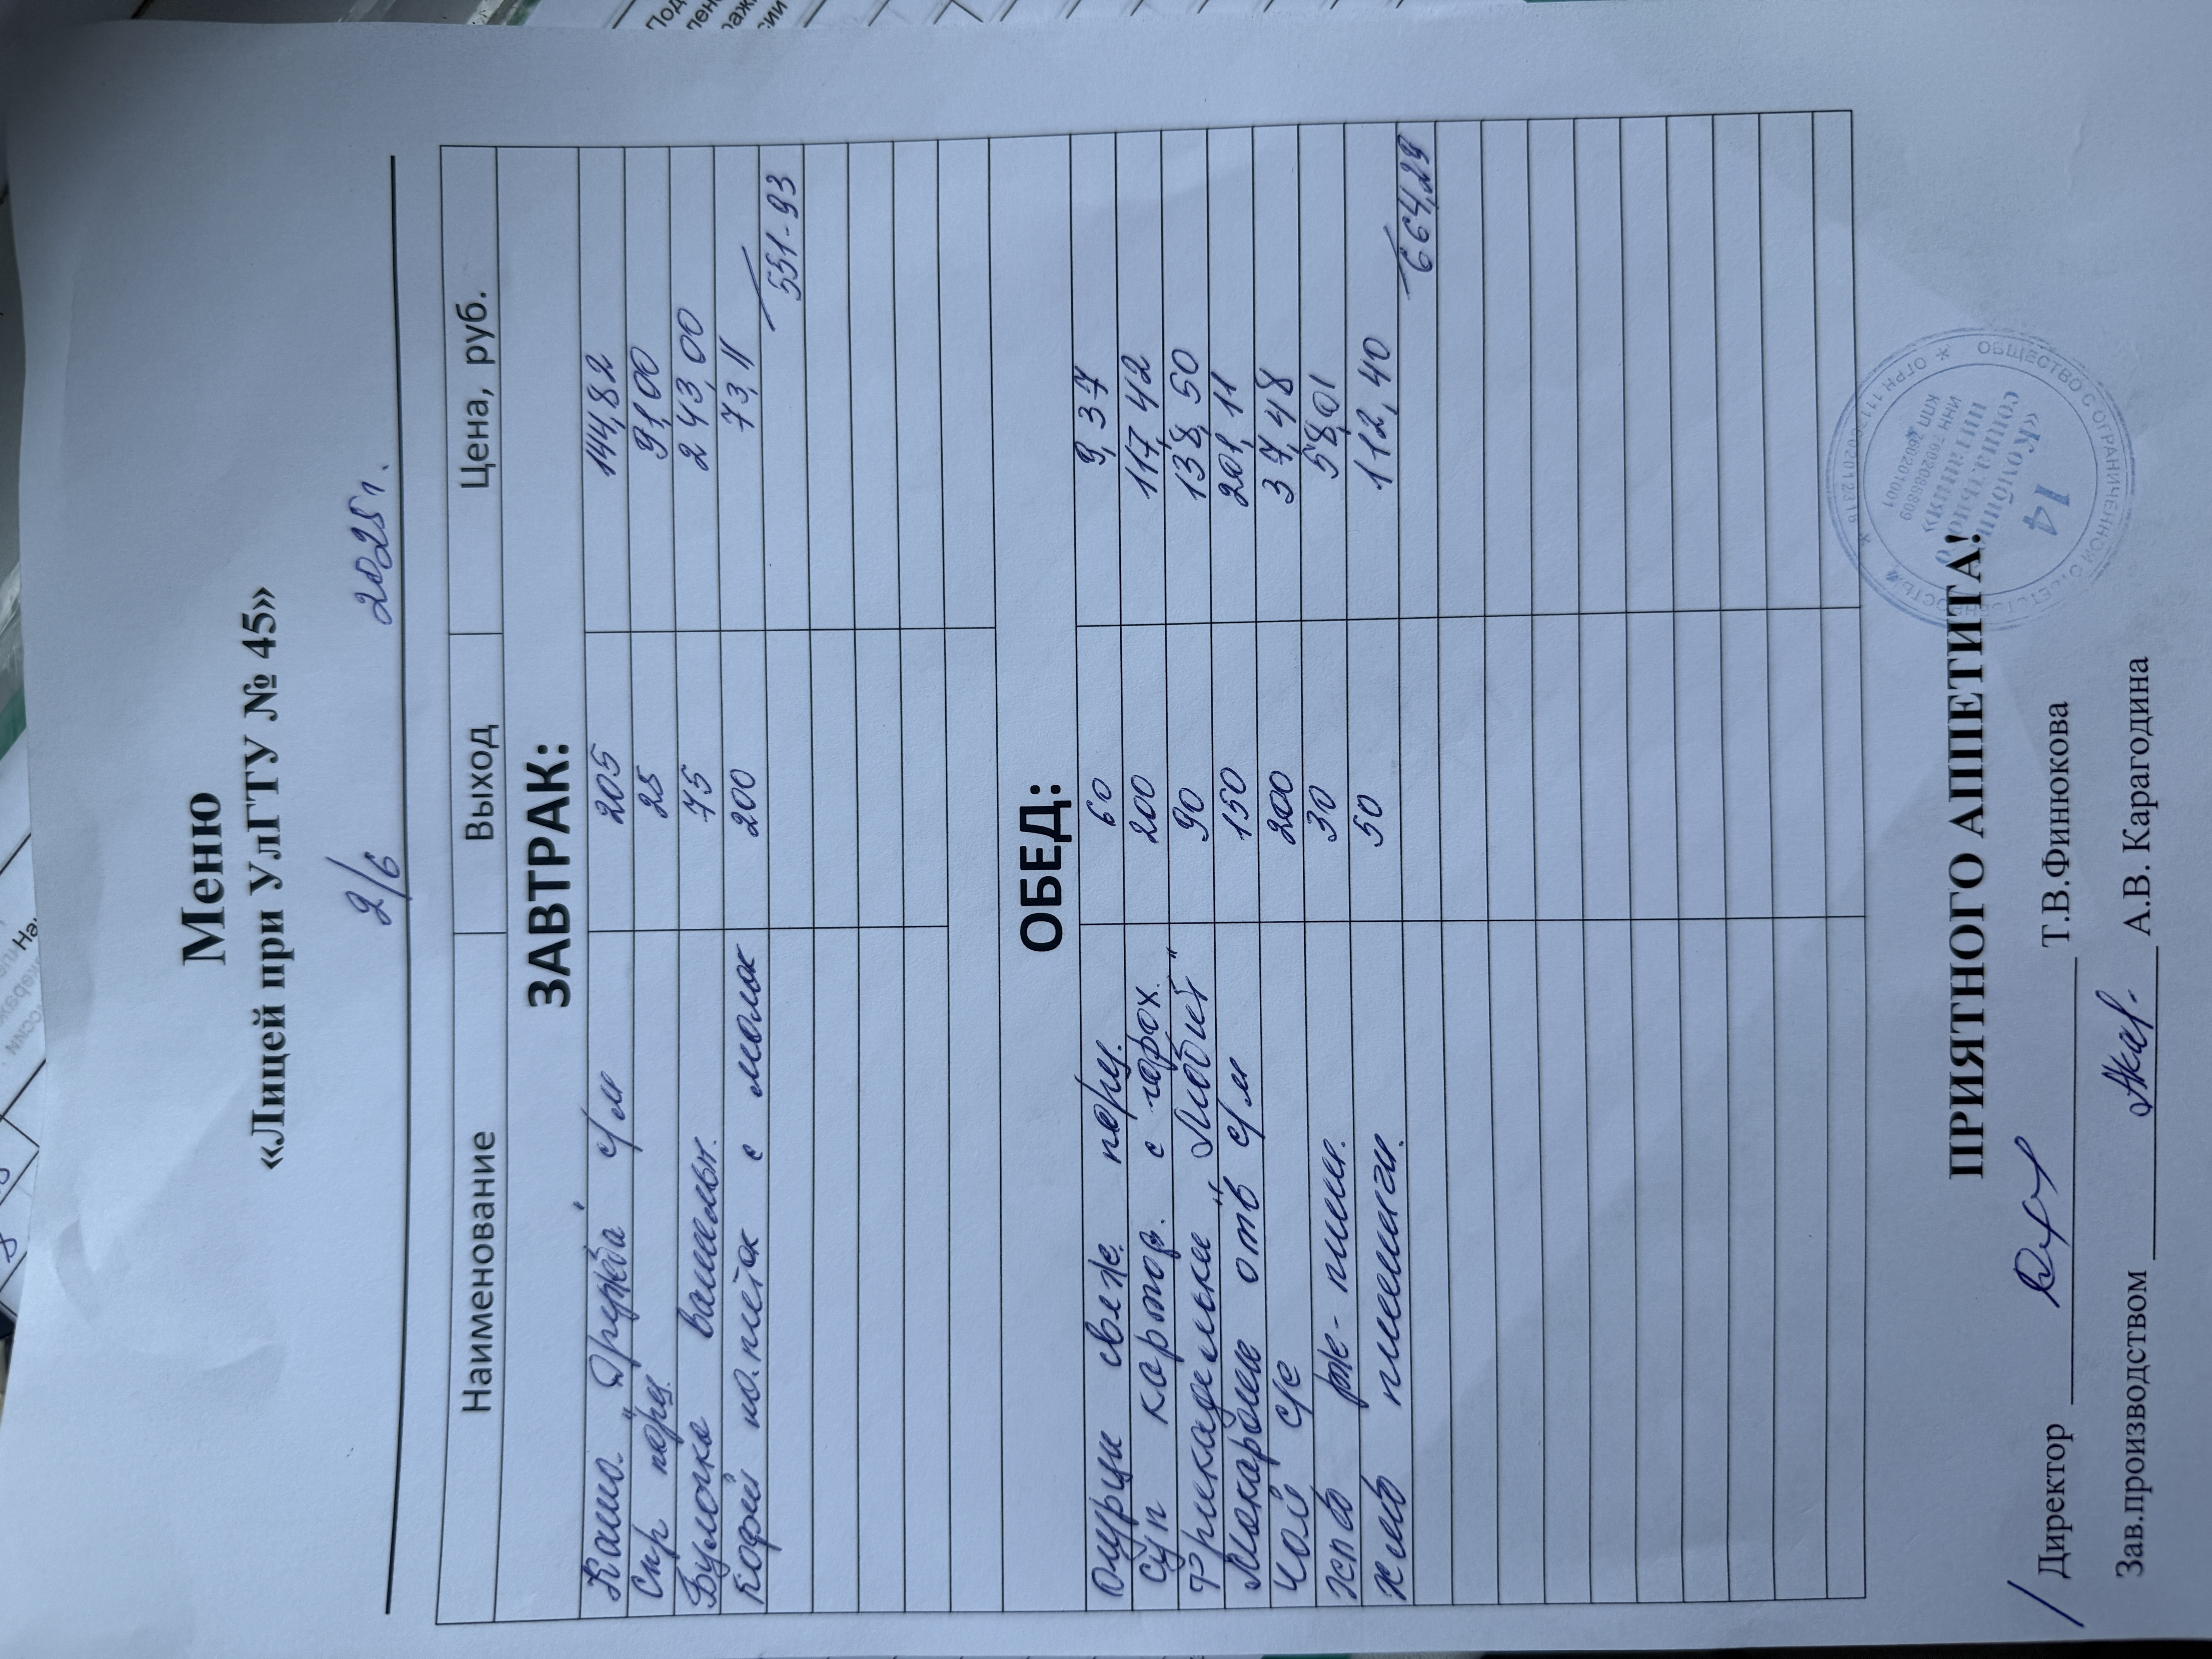 Меню
«Лицей при УлГТУ № 45»
2/6 2025г.
Наименование Выход Цена, руб.
ЗАВТРАК:
Каша "Дружба" с/м 205 144,82
Сыр порц. 25 91,00
Булочка ванильн. 75 243,00
Кофей на.питок с молок 200 73,11
551-93
ОБЕД:
Огурцы свеже. порц. 60 9,37
Суп картоф. с горох. 200 117,42
Фрикадельки "Любит" 90 138,50
Макароны отв с/м 150 201,11
Чай с/с 200 37,48
Хлеб рже-пшен. 30 58,01
Хлеб пшеничн. 50 112,40
664,29
ПРИЯТНОГО АППЕТИТА!
Директор Т.В.Финюкова
Зав.производством А.В. Карагодина
ОБЩЕСТВО С ОГРАНИЧЕННОЙ ОТВЕТСТВЕННОСТЬЮ
«Комбинат
социального
питания»
14